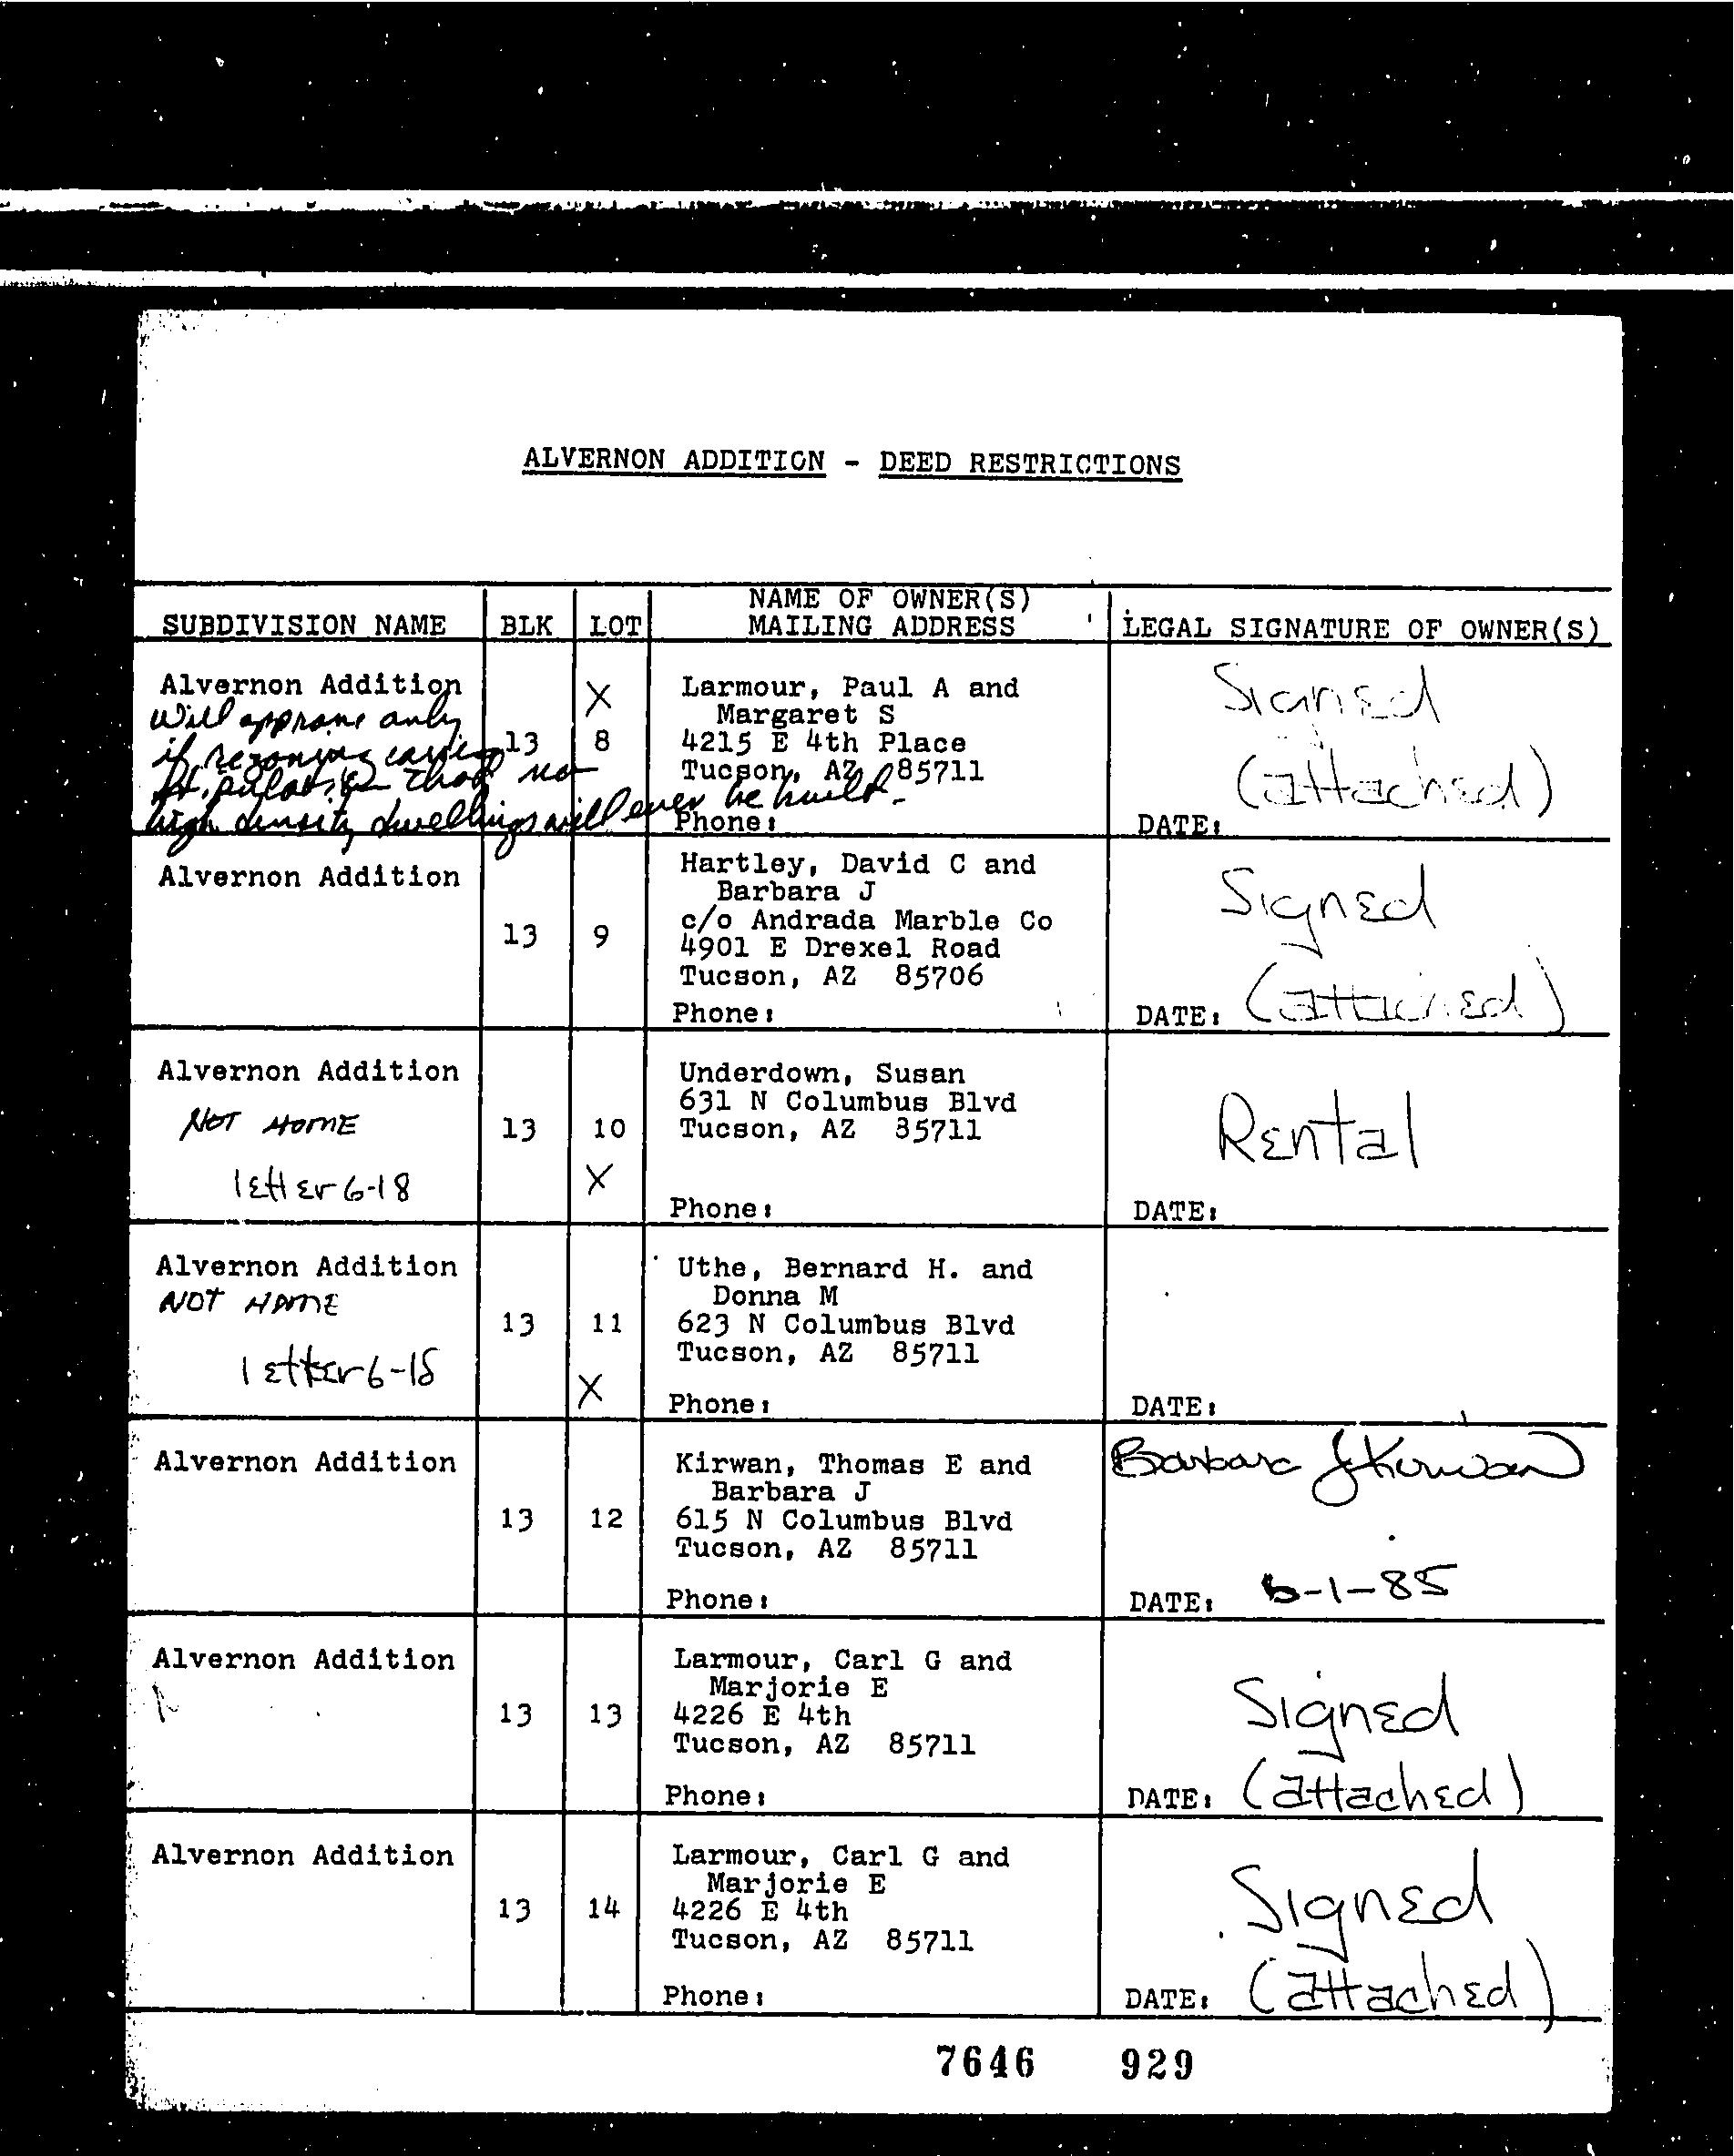 ALVERNON ADDITION - DEED RESTRICTIONS
SUBDIVISION NAME BLK LOT NAME OF OWNER(S) MAILING ADDRESS LEGAL SIGNATURE OF OWNER(S)
Alvernon Addition
Will approve only
if rezoning carries
stipulation that no
high density dwellings will ever be built.
13
X
8
Larmour, Paul A and
Margaret S
4215 E 4th Place
Tucson, AZ 85711
Phone:
Signed
(attached)
DATE:
Alvernon Addition
13
9
Hartley, David C and
Barbara J
c/o Andrada Marble Co
4901 E Drexel Road
Tucson, AZ 85706
Phone:
Signed
DATE: (attached)
Alvernon Addition
NOT HOME
letter 6-18
13
10
X
Underdown, Susan
631 N Columbus Blvd
Tucson, AZ 85711
Phone:
Rental
DATE:
Alvernon Addition
NOT HOME
letter 6-18
13
11
X
Uthe, Bernard H. and
Donna M
623 N Columbus Blvd
Tucson, AZ 85711
Phone:
DATE:
Alvernon Addition
13
12
Kirwan, Thomas E and
Barbara J
615 N Columbus Blvd
Tucson, AZ 85711
Phone:
Barbara J Kirwan
DATE: 6-1-85
Alvernon Addition
13
13
Larmour, Carl G and
Marjorie E
4226 E 4th
Tucson, AZ 85711
Phone:
Signed
DATE: (attached)
Alvernon Addition
13
14
Larmour, Carl G and
Marjorie E
4226 E 4th
Tucson, AZ 85711
Phone:
Signed
DATE: (attached)
7646 929